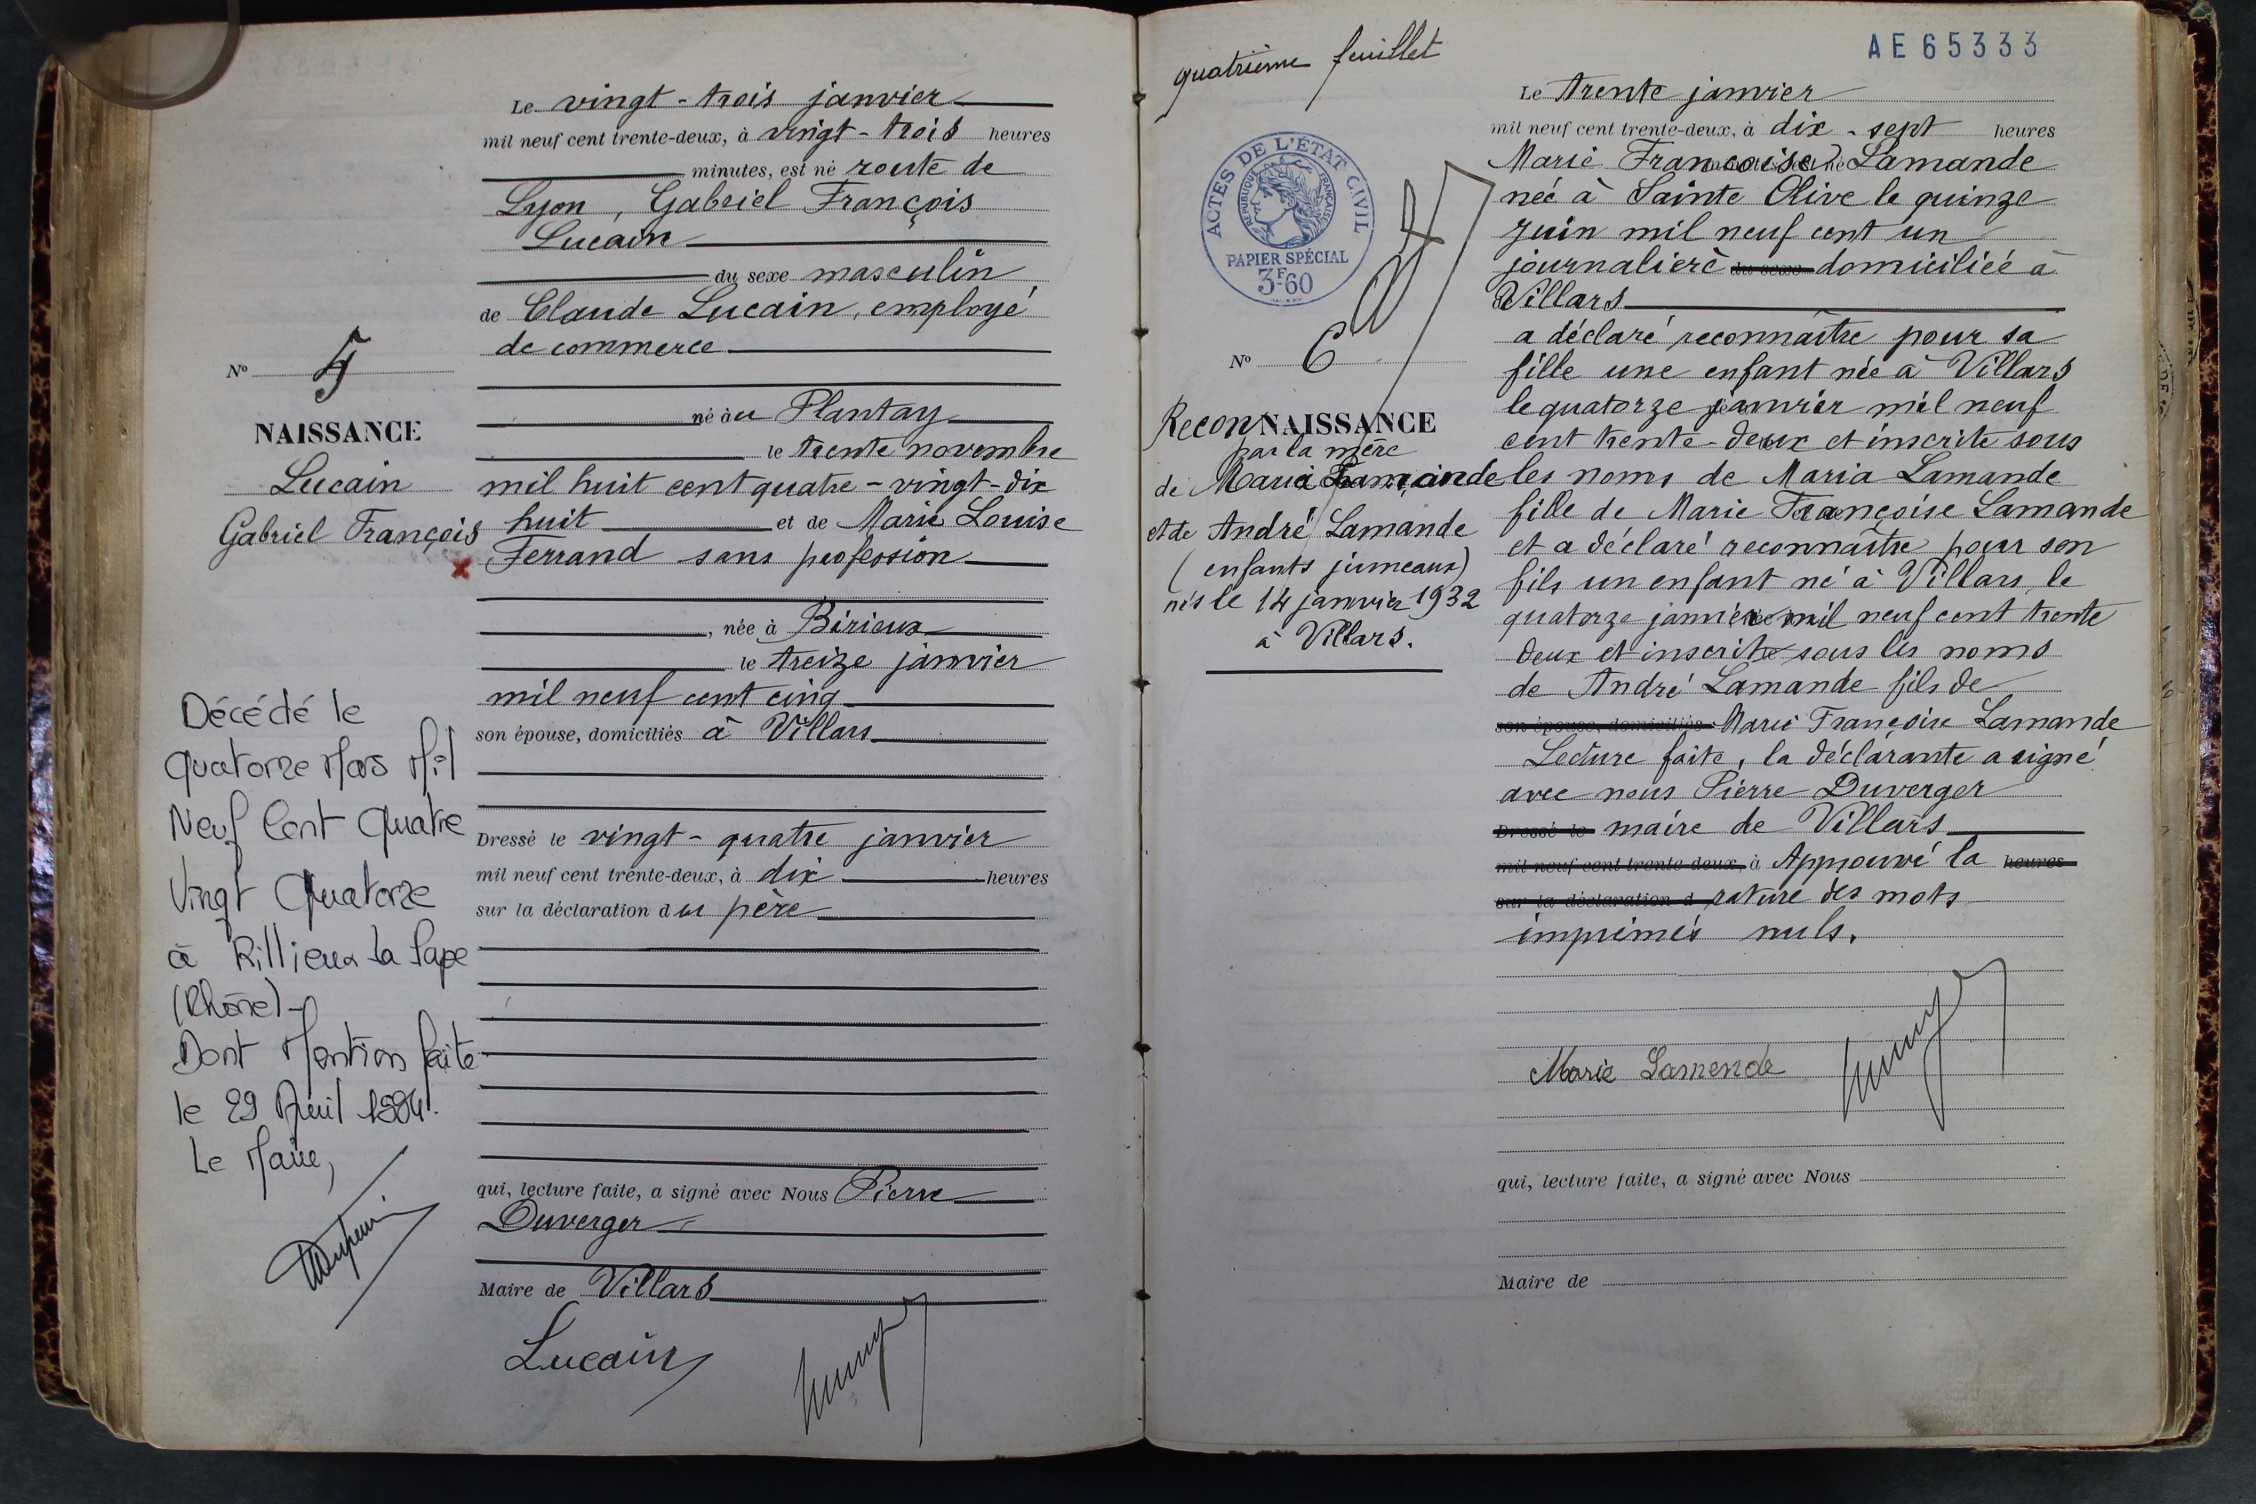 Le vingt-trois janvier
mil neuf cent trente-deux, à vingt-trois heures
minutes, est né route de
Lyon, Gabriel François
Lucain
du sexe masculin
de Claude Lucain, employé
de commerce
né au Plantay
le trente novembre
mil huit cent quatre-vingt-dix
huit et de Marie Louise
Ferrand sans profession
, née à Birieux
le treize janvier
mil neuf cent cinq
son épouse, domiciliés à Villars
Dressé le vingt-quatre janvier
mil neuf cent trente-deux, à dix heures
sur la déclaration du père
qui, lecture faite, a signé avec Nous Pierre
Duverger
Maire de Villars
Lucain
No 5
NAISSANCE
Lucain
Gabriel François
x
Décédé le
Quatorze Mars Mil
Neuf Cent Quatre
Vingt Quatorze
à Rillieux La Pape
(Rhône)-
Dont Mention faite
le 29 Avril 1994.
Le Maire,
quatrième feuillet
AE65333
ACTES DE L'ÉTAT CIVIL
RÉPUBLIQUE FRANÇAISE
PAPIER SPÉCIAL
3F60
No 6
ReconNAISSANCE
par la mère
de Maria
et de André Lamande
(enfants jumeaux)
nés le 14 janvier 1932
à Villars.
Le trente janvier
mil neuf cent trente-deux, à dix-sept heures
Marie Françoise Lamande
née à Sainte Olive le quinze
juin mil neuf cent un
journalière du sexe domiciliée à
Villars
a déclaré reconnaître pour sa
fille une enfant née à Villars
le quatorze janvier mil neuf
cent trente-deux et inscrite sous
les noms de Maria Lamande
fille de Marie Françoise Lamande
et a déclaré reconnaître pour son
fils un enfant né à Villars le
quatorze janvier mil neuf cent trente
deux et inscrit sous les noms
de André Lamande fils de
son épouse, domiciliés Marie Françoise Lamande
Lecture faite, la déclarante a signé
avec nous Pierre Duverger
Dressé le maire de Villars
mil neuf cent trente-deux, à Approuvé la heures
sur la déclaration d rature des mots
imprimés nuls.
Marie Lamende
qui, lecture faite, a signé avec Nous
Maire de